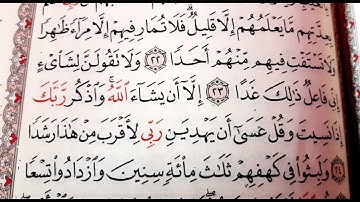 بِعِدَّتِهِم مَّا يَعْلَمُهُمْ إِلَّا قَلِيلٌ ۗ فَلَا تُمَارِ فِيهِمْ إِلَّا مِرَآءً ظَٰهِرًا
وَلَا تَسْتَفْتِ فِيهِم مِّنْهُمْ أَحَدًا ﴿٢٢﴾ وَلَا تَقُولَنَّ لِشَا۟ىْءٍ
إِنِّى فَاعِلٌ ذَٰلِكَ غَدًا ﴿٢٣﴾ إِلَّآ أَن يَشَآءَ ٱللَّهُ ۚ وَٱذْكُر رَّبَّكَ
إِذَا نَسِيتَ وَقُلْ عَسَىٰٓ أَن يَهْدِيَنِ رَبِّى لِأَقْرَبَ مِنْ هَٰذَا رَشَدًا
﴿٢٤﴾ وَلَبِثُوا۟ فِى كَهْفِهِمْ ثَلَٰثَ مِا۟ئَةٍ سِنِينَ وَٱزْدَادُوا۟ تِسْعًا